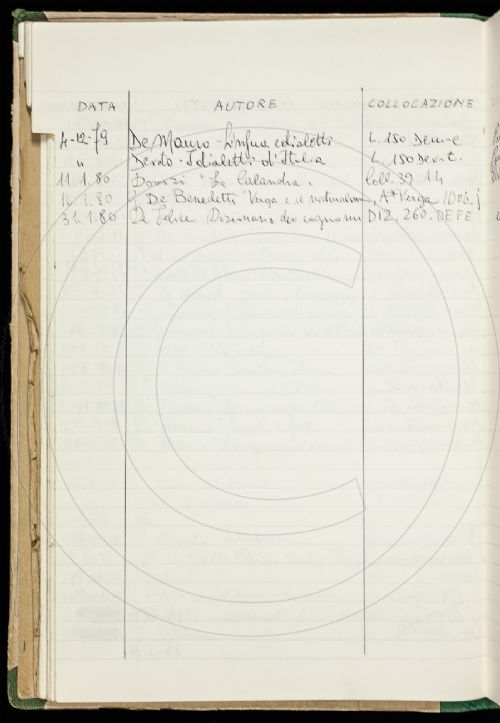 DATA AUTORE COLLOCAZIONE
4-12-79 De Mauro - Lingua e dialetti L. 150 Dem-e
" Devoto - I dialetti d'Italia L. 150 Dev-t.
11.1.80 Dovizi "La Calandria" Coll. 39 14
11.1.80 De Benedetti "Verga e il naturalismo", A* Verga 1Deb.j
31.1.80 De Felice Dizionario dei cognomi DIZ. 260. DEFE